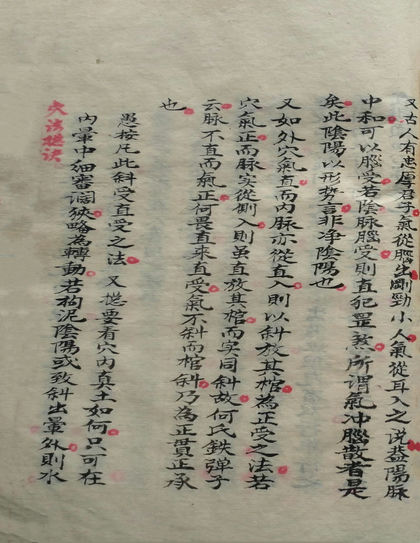 古人有忠厚君子氣從腦出剛勁小人氣從耳入之说益陽脉
中和可以腦受若陰脉腦受則直犯罡煞所謂氣冲腦散者是
矣此陰陽以形势言非净陰陽也
又如外穴氣直而内脉亦從直入則以斜放其棺為正受之法若
穴氣正而脉实從側入則虽直放其棺而实同斜故何氏鉄弹子
云脉不直而氣正何畏直来直受氣不斜而棺斜乃為正貫正承
也
愚按凡此斜受直受之法又总要看穴内真土如何只可在
内暈中细審闊狹略為轉動若拘泥陰陽或致斜出暈外則水
穴法總訣